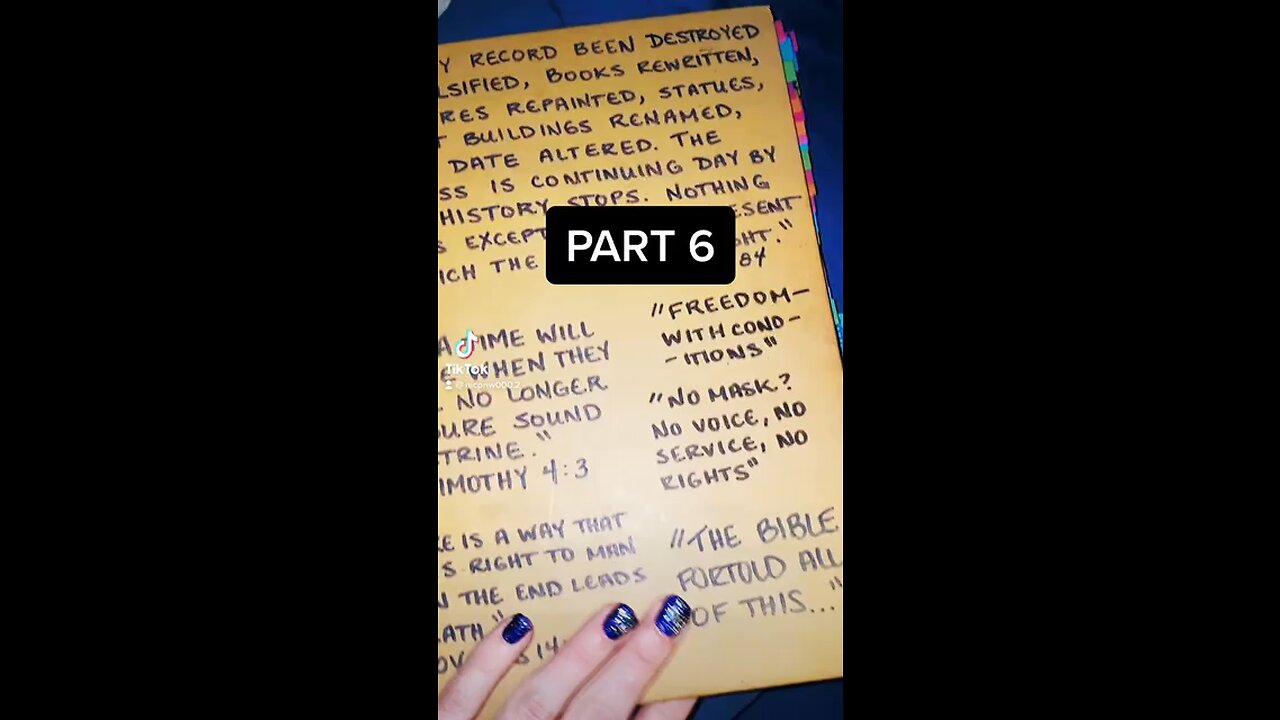 Y RECORD BEEN DESTROYED
LSIFIED, BOOKS REWRITTEN,
RES REPAINTED, STATUES,
T BUILDINGS RENAMED,
DATE ALTERED. THE
SS IS CONTINUING DAY BY
HISTORY STOPS. NOTHING
S EXCEPT ESENT
ICH THE GHT."
84
PART 6
A TIME WILL
E WHEN THEY
L NO LONGER
DURE SOUND
TRINE."
IMOTHY 4:3
"FREEDOM-
WITH COND-
-ITIONS"
"NO MASK?
NO VOICE, NO
SERVICE, NO
RIGHTS"
RE IS A WAY THAT
S RIGHT TO MAN
N THE END LEADS
ATH."
OV 14:
"THE BIBLE
FORTOLD ALL
OF THIS..."
TikTok